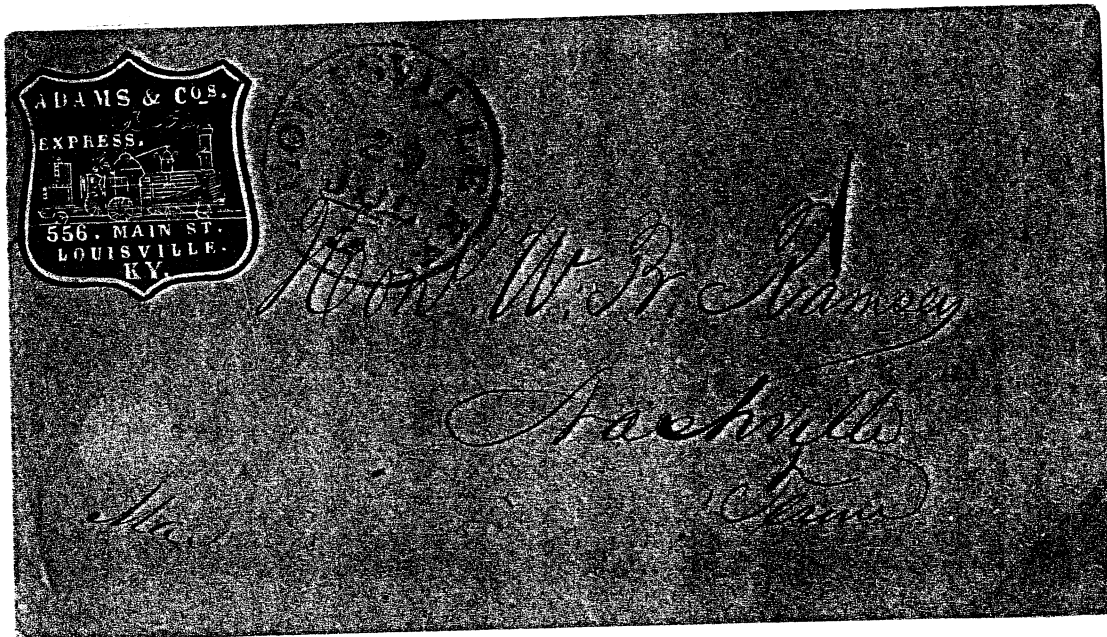 ADAMS & COS.
EXPRESS.
556. MAIN ST.
LOUISVILLE.
KY.
LOUISVILLE
Hon W. B. Ramsey
Nashville
Tenn